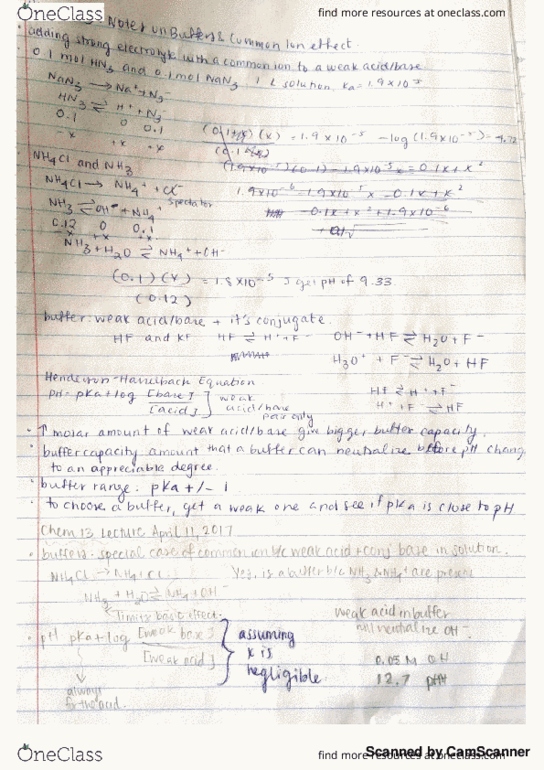 OneClass
find more resources at oneclass.com
Notes on Buffers & Common Ion effect
adding strong electrolyte with a common ion to a weak acid/base
0.1 mol HN3 and 0.1 mol NaN3 1 L solution, Ka = 1.9 x 10
NaN3 → Na+ + N3-
HN3 ⇌ H+ + N3-
0.1 0 0.1
-x +x +x
(0.1+x)(x) = 1.9 x 10-5 -log(1.9x10-5) = 4.72
(0.1-x)
1.9x10-6 - 1.9x10-5x = 0.1x + x2
0.1x + x2 + 1.9x10-6
NH4Cl and NH3
NH4Cl → NH4+ + Cl-
spectator
NH3 ⇌ OH- + NH4+
0.12 0 0.1
+x +x
NH3 + H2O ⇌ NH4+ + OH-
(0.1)(x) = 1.8x10-5 get pH of 9.33
(0.12)
buffer: weak acid/base + it's conjugate.
HF and KF HF ⇌ H+ + F- OH- + HF ⇌ H2O + F-
H3O+ + F- ⇌ H2O + HF
Equation
pH = pKa + log [base] weak
[acid] acid/base
pair only
HF ⇌ H+ + F-
H+ + F- ⇌ HF
· ↑ molar amount of weak acid/base give bigger buffer capacity.
· buffer capacity amount that a buffer can neutralize before pH change
to an appreciable degree.
· buffer range: pKa +/- 1
· to choose a buffer, get a weak one and see if pKa is close to pH
Chem 13 Lecture April 11, 2017
· buffers - special case of common ion b/c weak acid + conj base in solution.
NH4Cl → NH4 + Cl- Yes, is a buffer b/c NH3 & NH4+ are present
NH3 + H2O ⇌ NH4 + OH-
limits basic effect.
weak acid in buffer
will neutralize OH-.
· pH pKa + log [weak base]
[weak acid]
assuming
x is
negligible
0.05 M OH
12.7 pH
always
for the acid.
OneClass
find more resources at oneclass.com
Scanned by CamScanner